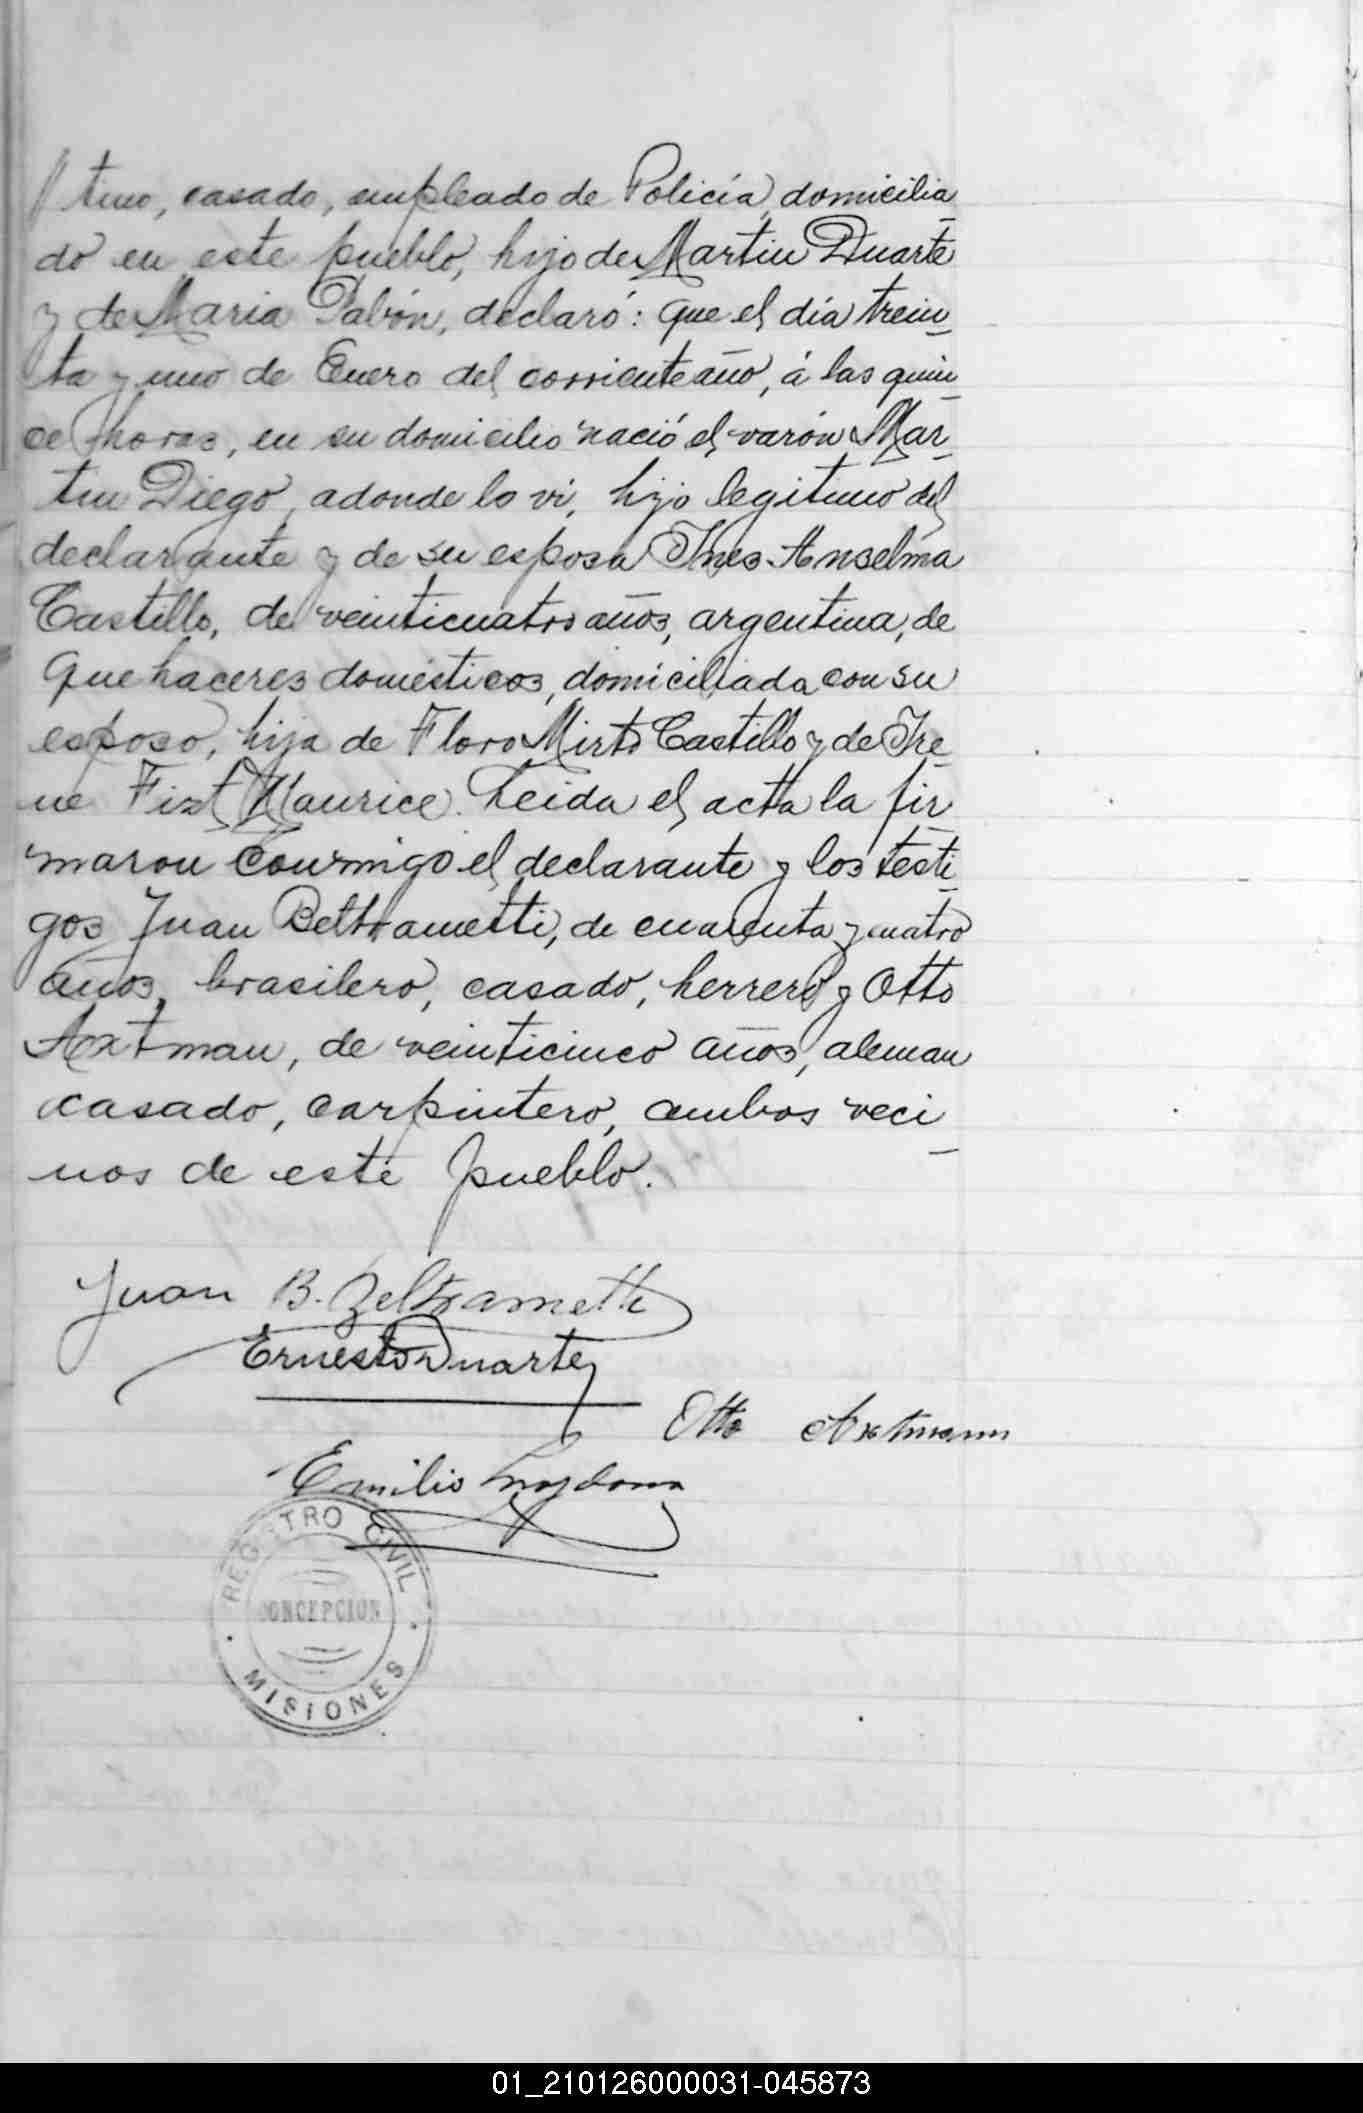 tino, casado, empleado de Policía, domicilia
do en este pueblo, hijo de Martin Duarte
y de Maria Pabón, declaró: que el día trein
ta y uno de Enero del corriente año, á las quin
ce horas, en su domicilio nació el varón Mar
tin Diego, adonde lo vi, hijo legitimo del
declarante y de su esposa Ines Anselma
Castillo, de veinticuatro años, argentina, de
que haceres domésticos, domiciliada con su
esposo, hija de Floro Mirto Castillo y de Ire
ne Fizt Maurice. Leida el acta la fir
maron conmigo el declarante y los testi
gos Juan Beltrametti, de cuarenta y cuatro
años, brasilero, casado, herrero y Otto
Axtman, de veinticinco años, aleman
casado, carpintero, ambos veci
nos de este pueblo.
Juan B. Beltrametti
Ernesto Duarte
Otto Axtmann
Emilio
REGISTRO CIVIL
CONCEPCION
MISIONES
01_210126000031-045873